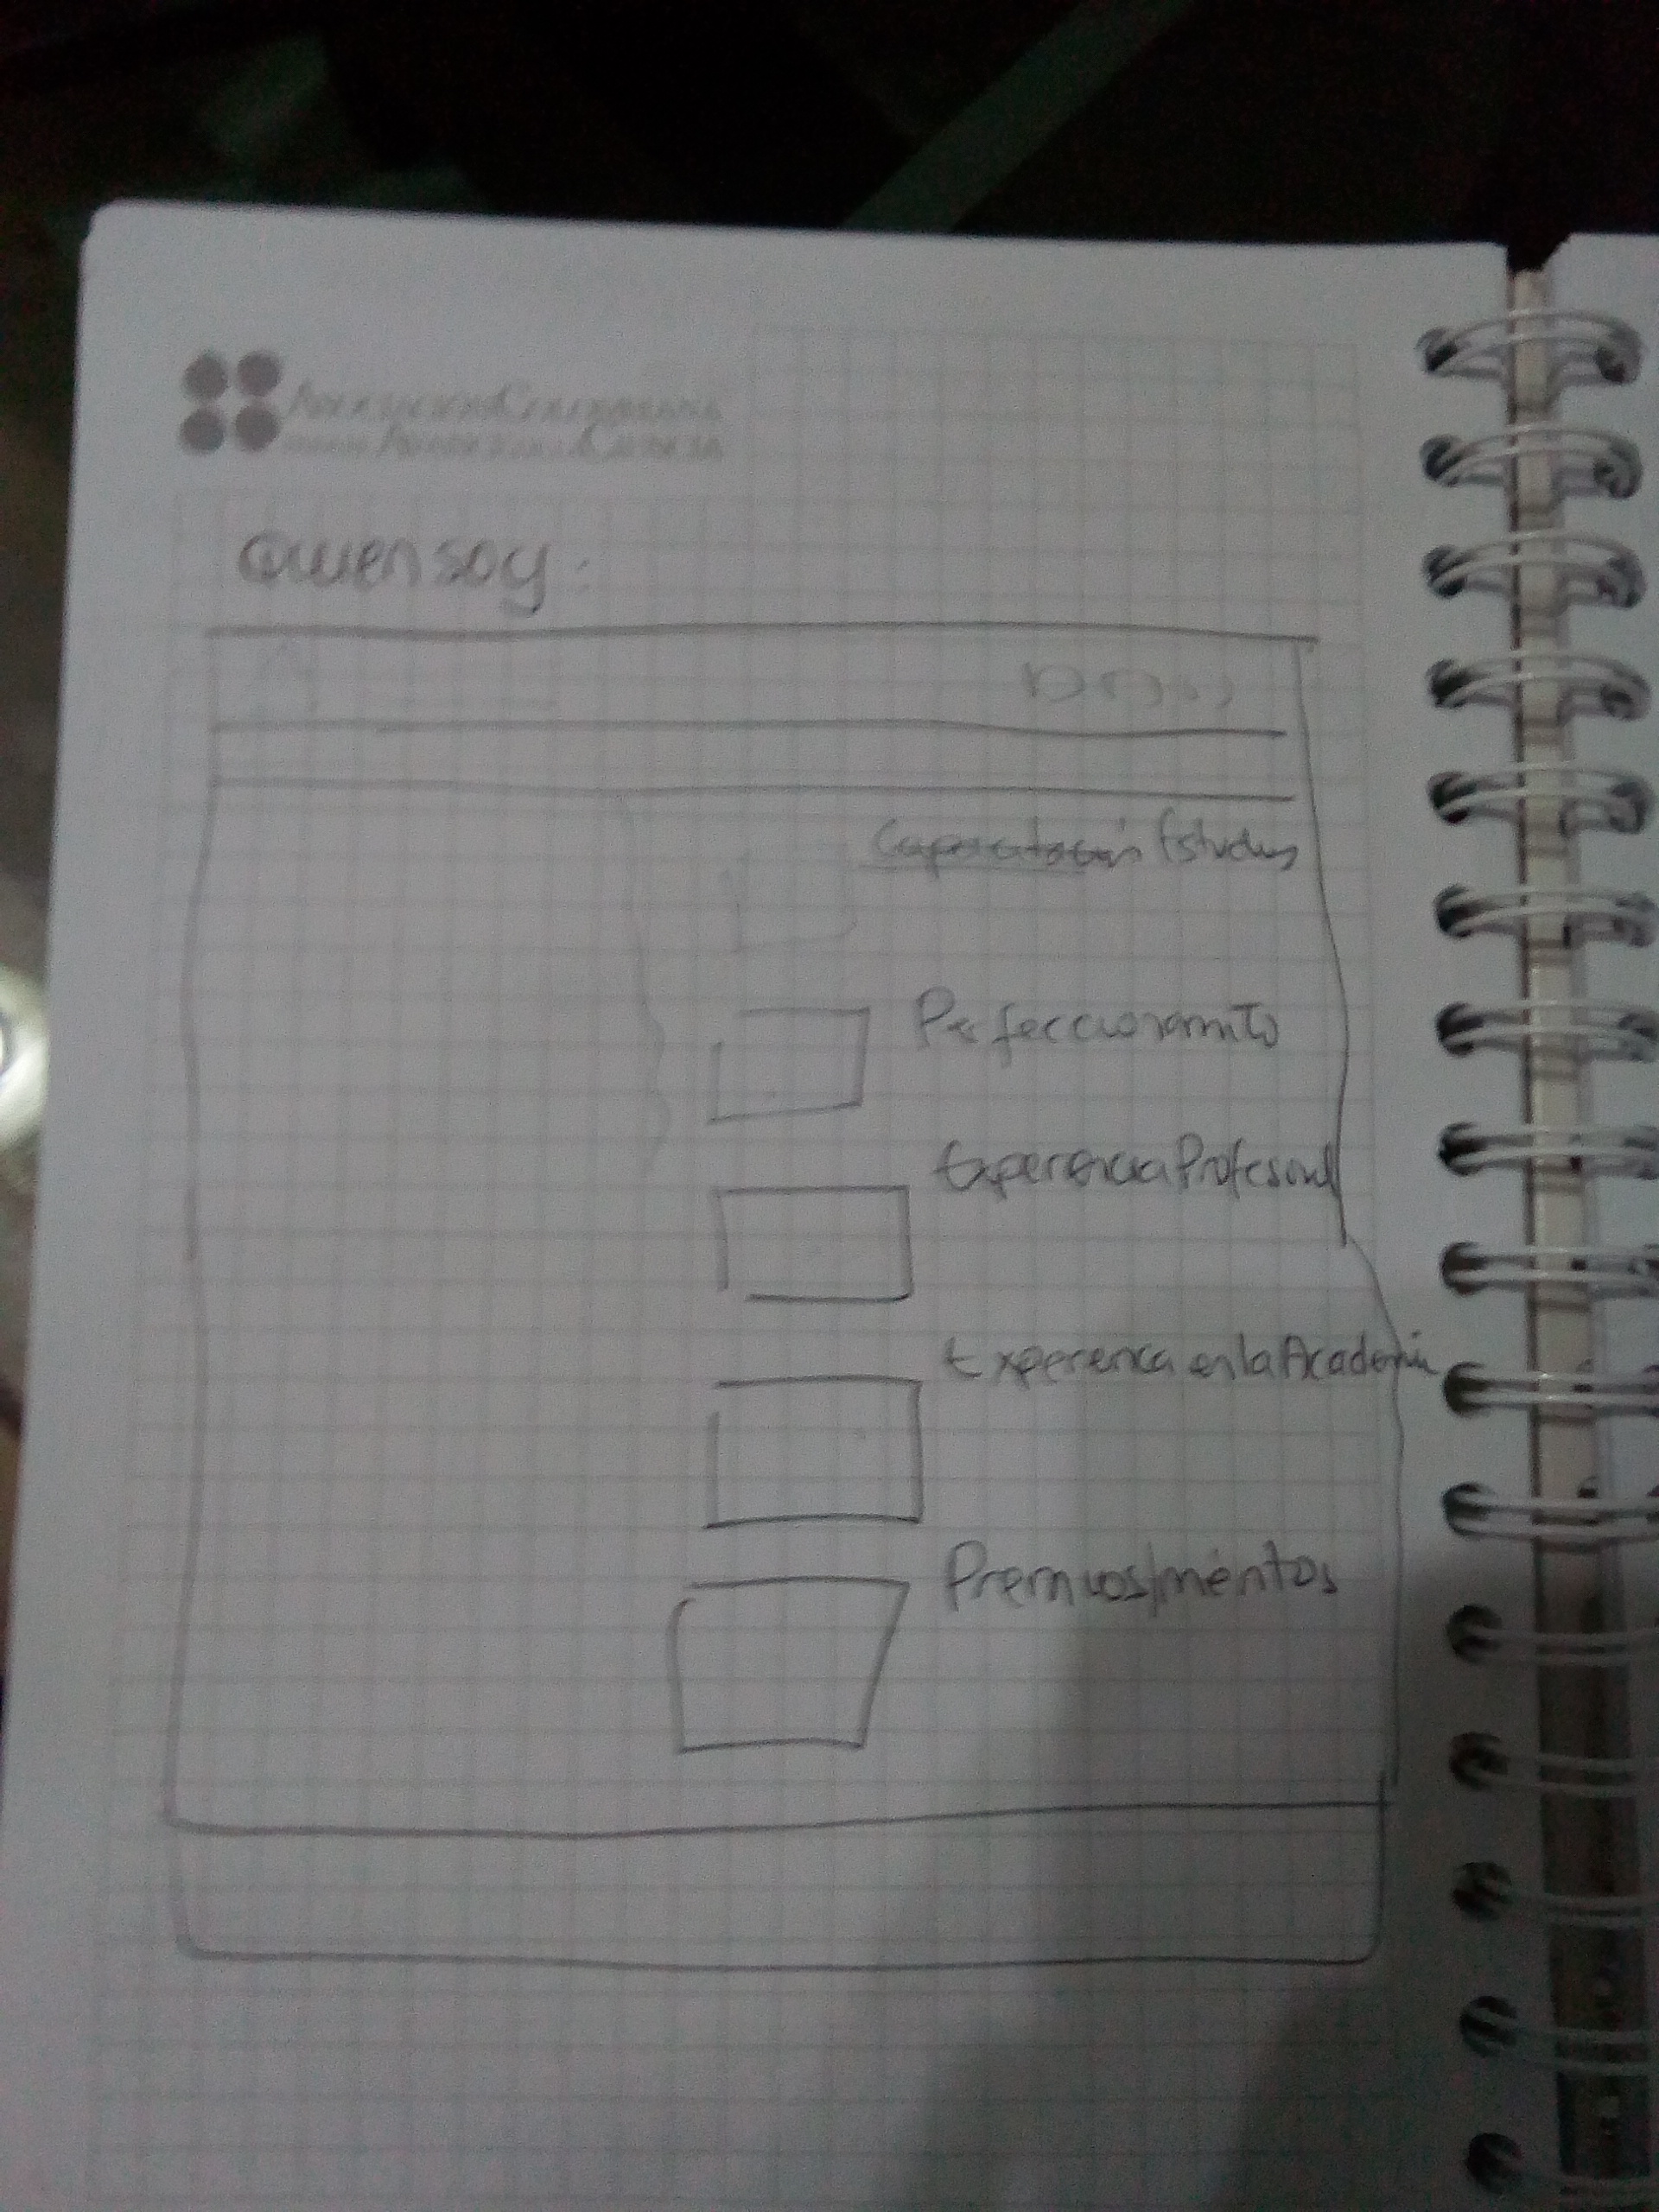 Quien soy:
Capacitación Estudios
Perfeccionamito
Experiencia Profesional
Experienca en la Academia
Premios/méritos